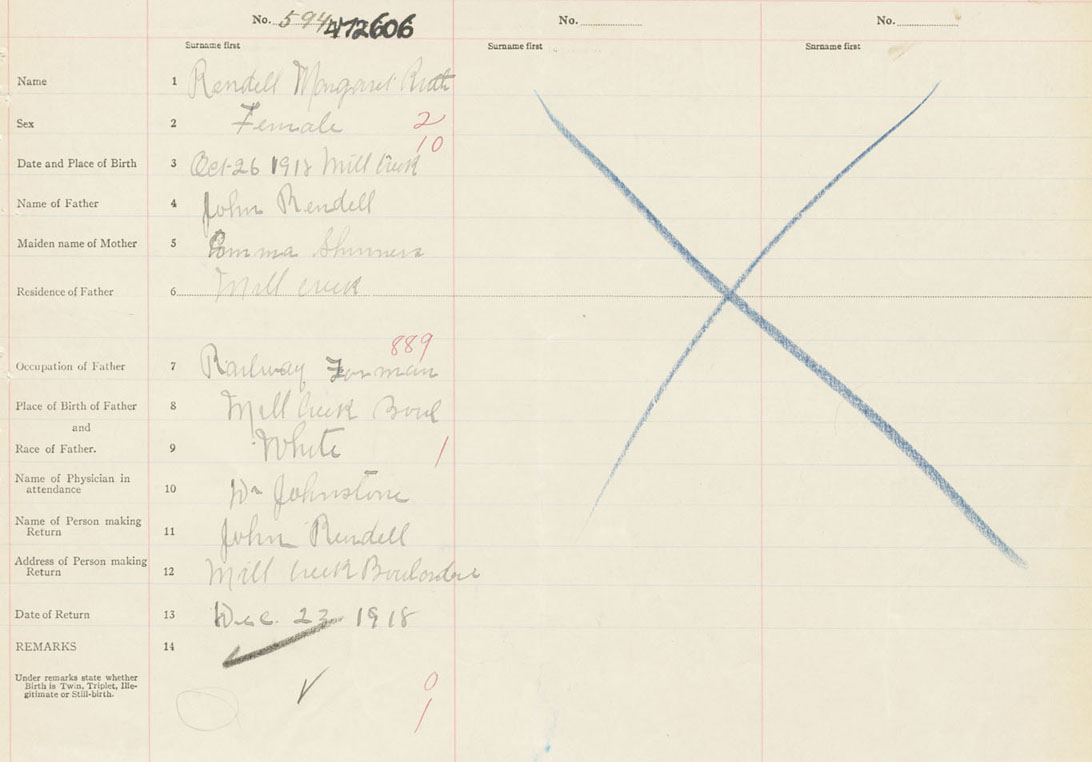 No. 594 472606
No.
No.
Surname first
Surname first
Surname first
Name 1 Rendell Margaret Ruth
Sex 2 Female 2
10
Date and Place of Birth 3 Oct-26 1918 Mill Creek
Name of Father 4 John Rendell
Maiden name of Mother 5 Emma
Residence of Father 6 Mill Creek
889
Occupation of Father 7 Railway Forman
Place of Birth of Father 8 Mill Creek Boul
and
Race of Father. 9 White 1
Name of Physician in
attendance 10 Johnstone
Name of Person making
Return 11 John Rendell
Address of Person making
Return 12 Mill Creek Boulardrie
Date of Return 13 Dec. 23 1918
REMARKS 14
Under remarks state whether
Birth is Twin, Triplet, Ille-
gitimate or Still-birth.
0
1